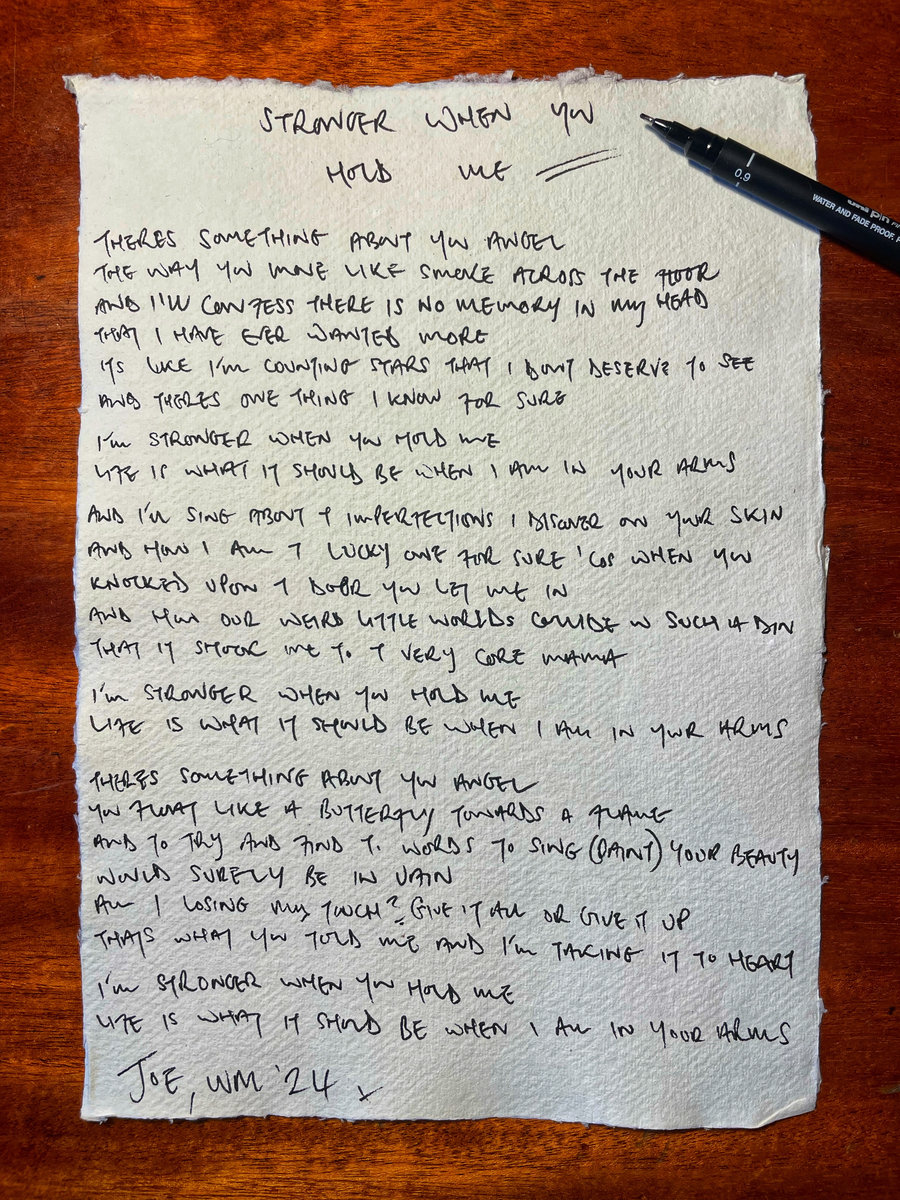 STRONGER WHEN YOU
HOLD ME
0.9
uni pin
WATER AND FADE PROOF.
THERES SOMETHING ABOUT YOU ANGEL
THE WAY YOU MOVE LIKE SMOKE ACROSS THE FLOOR
AND I'LL CONFESS THERE IS NO MEMORY IN MY HEAD
THAT I HAVE EVER WANTED MORE
ITS LIKE I'M COUNTING STARS THAT I DONT DESERVE TO SEE
AND THERES ONE THING I KNOW FOR SURE
I'M STRONGER WHEN YOU HOLD ME
LIFE IS WHAT IT SHOULD BE WHEN I AM IN YOUR ARMS
AND I'LL SING ABOUT T IMPERFECTIONS I DISCOVER ON YOUR SKIN
AND HOW I AM T LUCKY ONE FOR SURE 'COS WHEN YOU
KNOCKED UPON T DOOR YOU LET ME IN
AND HOW OUR WEIRD LITTLE WORLDS COLLIDE W SUCH A DIN
THAT IT SHOOK ME TO T VERY CORE MAMA
I'M STRONGER WHEN YOU HOLD ME
LIFE IS WHAT IT SHOULD BE WHEN I AM IN YOUR ARMS
THERES SOMETHING ABOUT YOU ANGEL
YOU FLOAT LIKE A BUTTERFLY TOWARDS A FLAME
AND TO TRY AND FIND T. WORDS TO SING (PAINT) YOUR BEAUTY
WOULD SURELY BE IN VAIN
AM I LOSING MY TOUCH? GIVE IT ALL OR GIVE IT UP
THATS WHAT YOU TOLD ME AND I'M TAKING IT TO HEART
I'M STRONGER WHEN YOU HOLD ME
LIFE IS WHAT IT SHOULD BE WHEN I AM IN YOUR ARMS
JOE, WM '24 x